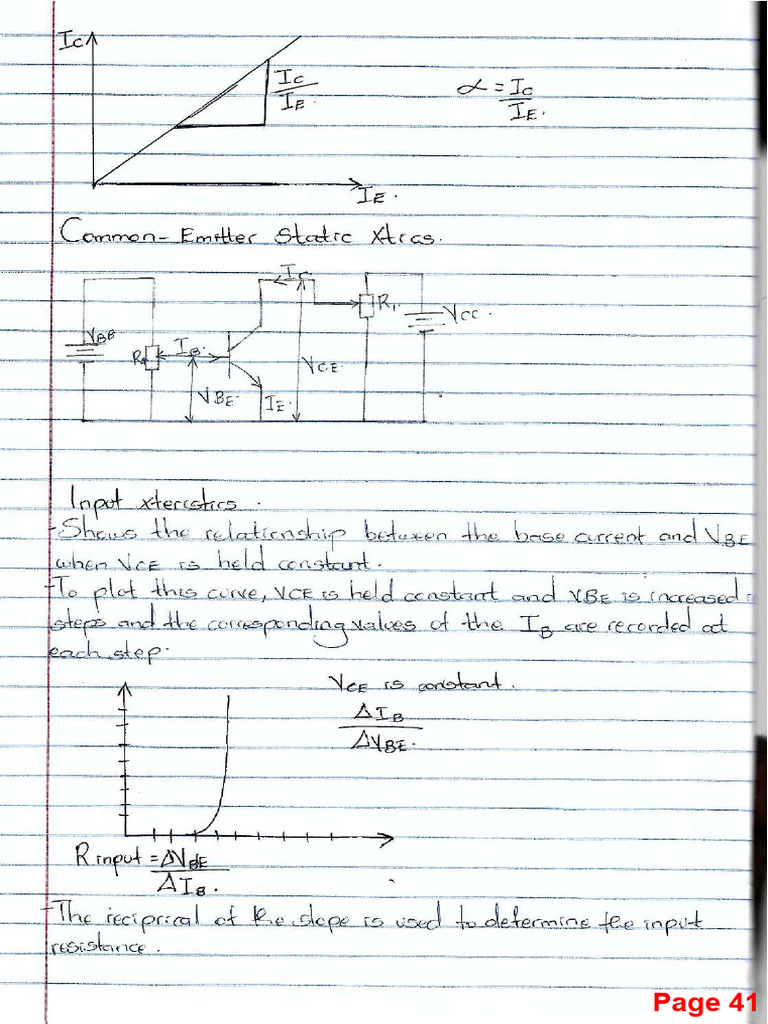 IC
IC
IE.
α = IC
IE.
IE.
Common-Emitter Static Xtics.
IC
R1
VCC.
VBE
R2
IB
VCE.
VBE.
IE.
Input xteristics.
-Shows the relationship between the base current and VBE
when VCE is held constant.
-To plot this curve, VCE is held constant and VBE is increased
steps and the corresponding values of the IB are recorded at
each step.
VCE is constant.
ΔIB
ΔVBE.
R input = ΔVBE
ΔIB.
-The reciprical of the slope is used to determine the input
resistance.
Page 41